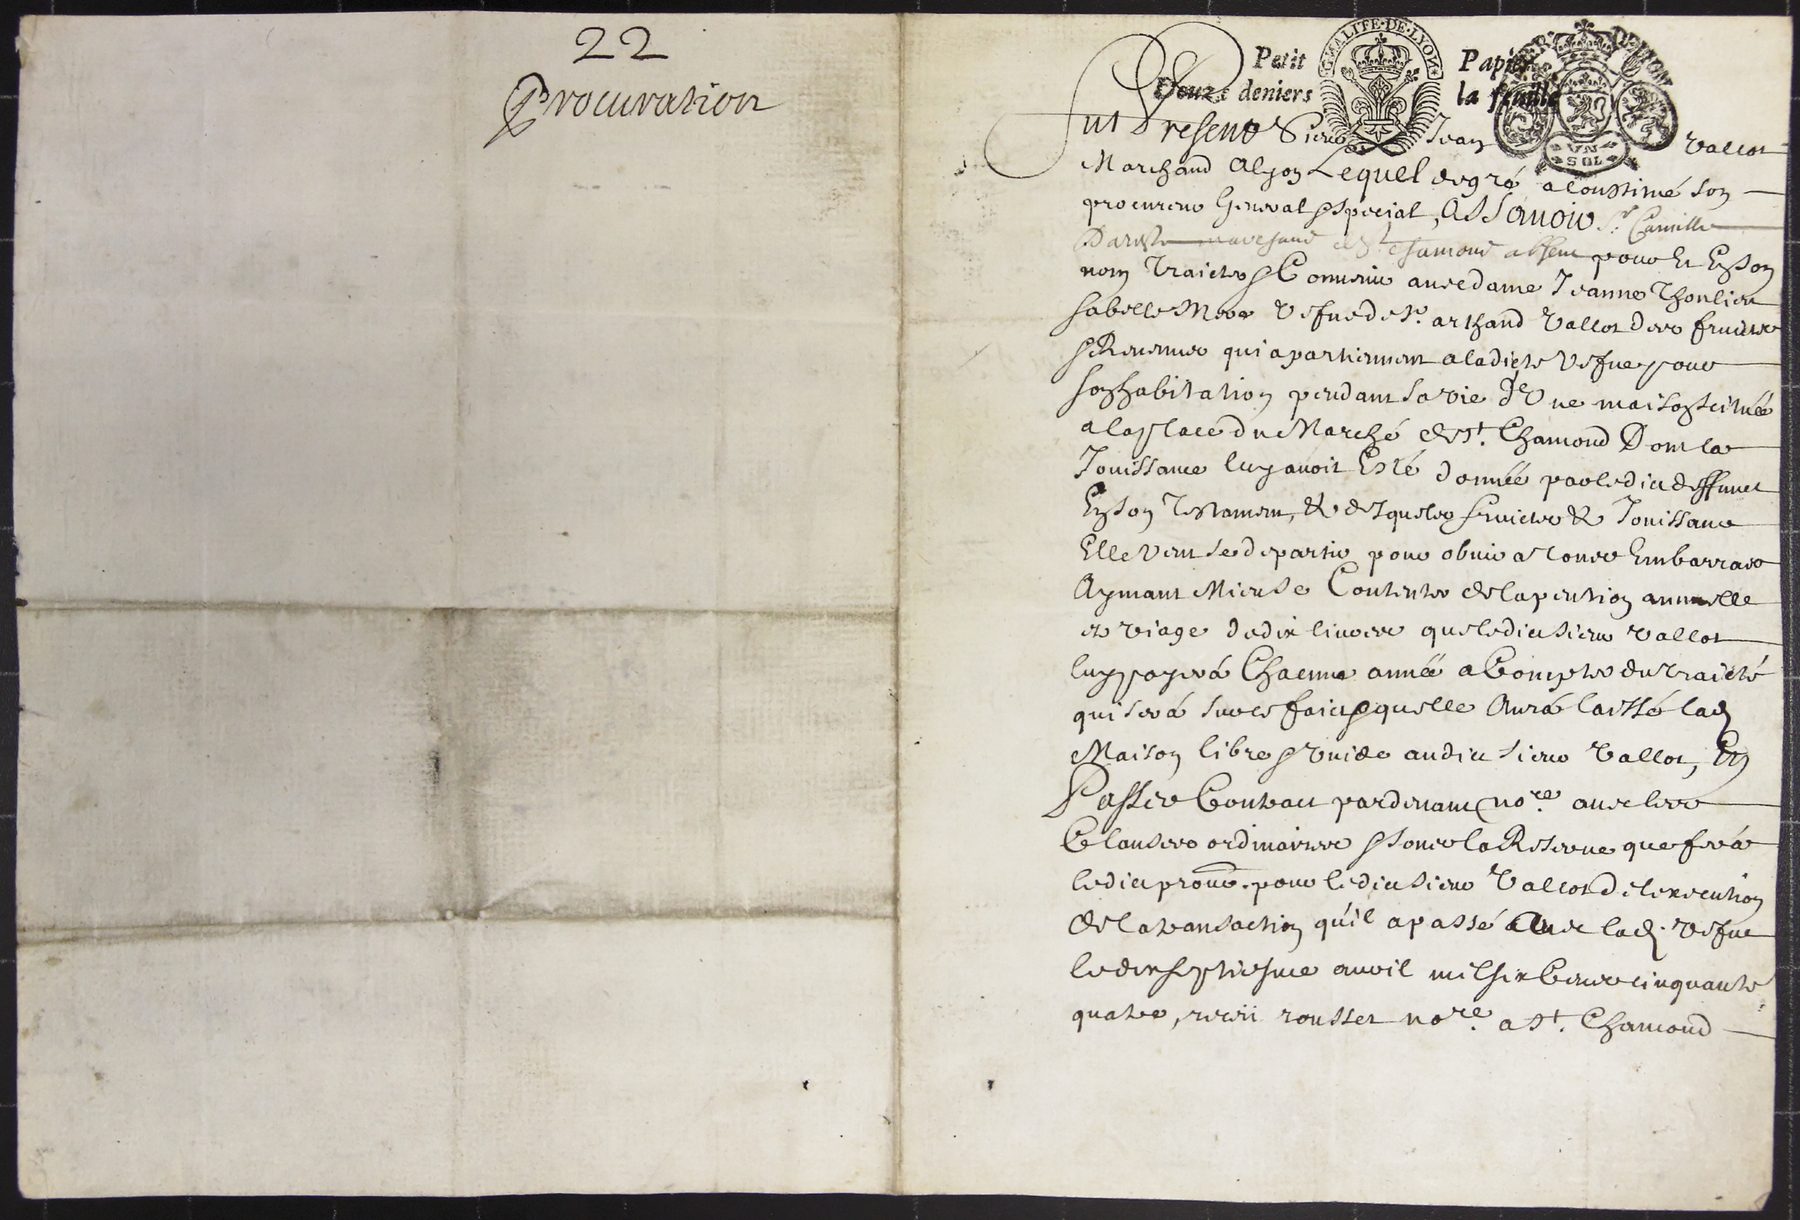 22
Procuration
GNALITE·DE·LYON
Petit Papier
Douze deniers la feuille
VN
SOL
Fut Present Sieur Jean Vallot
Marchand Alyon Lequel degré a constitué son
procureur General & special, Assavoir Sr. Camille
marchand de St chamond absent pour Et En son
nom Traicter & Convenir avec dame Jeanne Thoulieu
sa belle Mere Vefve de Sr. arthaud Vallot des fruictz
& Revenus qui apartiennent a ladicte Vefve pour
son habitation pendant sa vie d'Une maison scituéé
a la place du Marché de St. Chamond Dont la
Jouissance luy avoit Esté donnéé par ledict deffunct
En son Testament, & desquelz fruictz & Jouissance
Elle veut se departir pour obvier a tous Embarras
Aymant Mieux se Contenter de la pention annuelle
et viage de dix livres que ledict sieur Vallot
luy payerá Chacune annéé a Compter du Traicté
qui serà sur ce faict & quelle Aurà laissé lad
Maison libre & vuide audict sieur Vallot, En
Passer Contract pardevant nore. avec les
Clauses ordinaires & sous la Reserve que ferà
ledict procur. pour ledict sieur Vallot de lexecution
de la transaction qu'il a passé Avec lad. Vefve
le dix septiesme avril mil six Cens cinquante
quatre, receü rousset nore. a St. Chamond